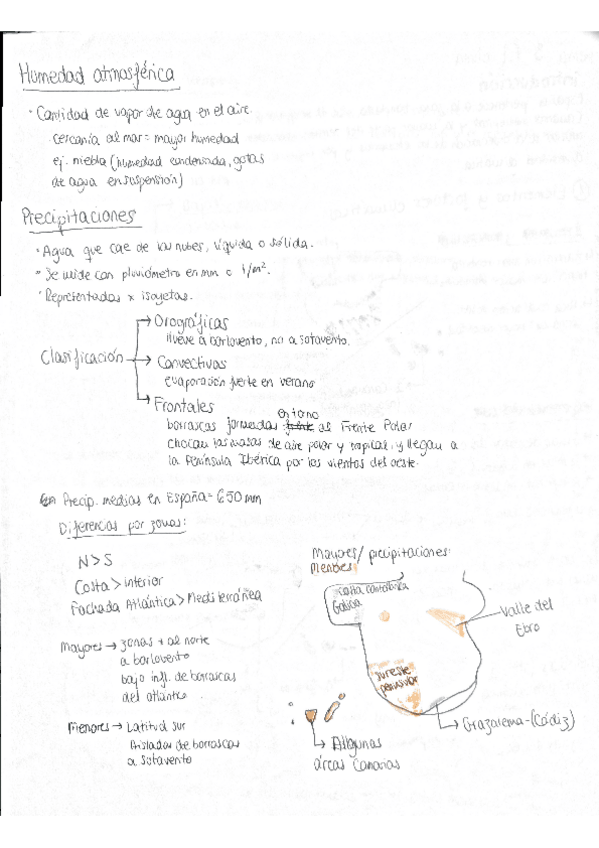 Humedad atmosférica
· Cantidad de vapor de agua en el aire.
cercanía al mar = mayor humedad
ej. niebla (humedad condensada, gotas
de agua en suspensión)
Precipitaciones
· Agua que cae de las nubes, líquida o sólida.
· Se mide con pluviómetro en mm o l/m².
· Representadas x isoyetas.
Clasificación
→ Orográficas
llueve a barlovento, no a sotavento.
→ Convectivas
evaporación fuerte en verano
→ Frontales
en torno
borrascas formadas al Frente Polar
chocan las masas de aire polar y tropical, y llegan a
la Península Ibérica por los vientos del oeste.
Precip. medias en España = 650 mm
Diferencias por zonas:
N > S
Costa > Interior
Fachada Atlántica > Mediterránea
Mayores → zonas + al norte
a barlovento
bajo infl. de borrascas
del atlántico
Menores → Latitud sur
Aislados de borrascas
a sotavento
Mayores/ precipitaciones:
menores
costa cantábrica
Galicia
Valle del
Ebro
sureste
peninsular
→ Grazalema - (Cádiz)
→ Algunas
áreas Canarias